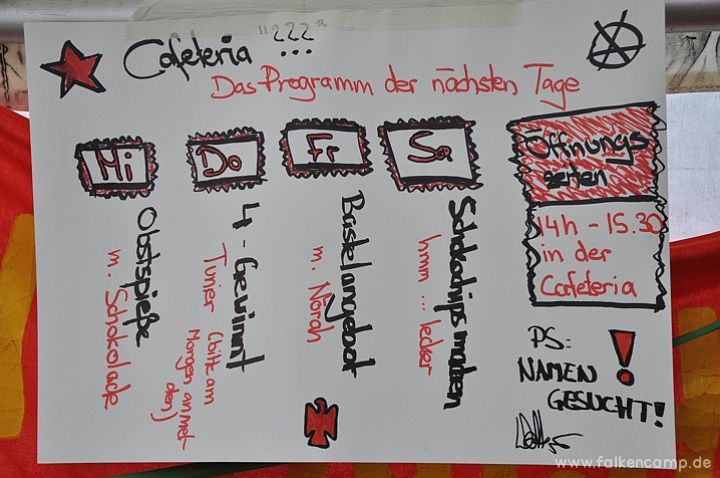 Cafeteria "???"
Das Programm der nächsten Tage
Mi
Obstspieße
m. Schokolade
Do
4-Gewinnt
Tunier (bitte am
Morgen anmel-
den)
Fr
Bastelangebot
m. Norah
Sa
Schokochips machen
hmm ... lecker
Öffnungs
zeiten
14h - 15.30
in der
Cafeteria
PS:
NAMEN
GESUCHT!
www.falkencamp.de